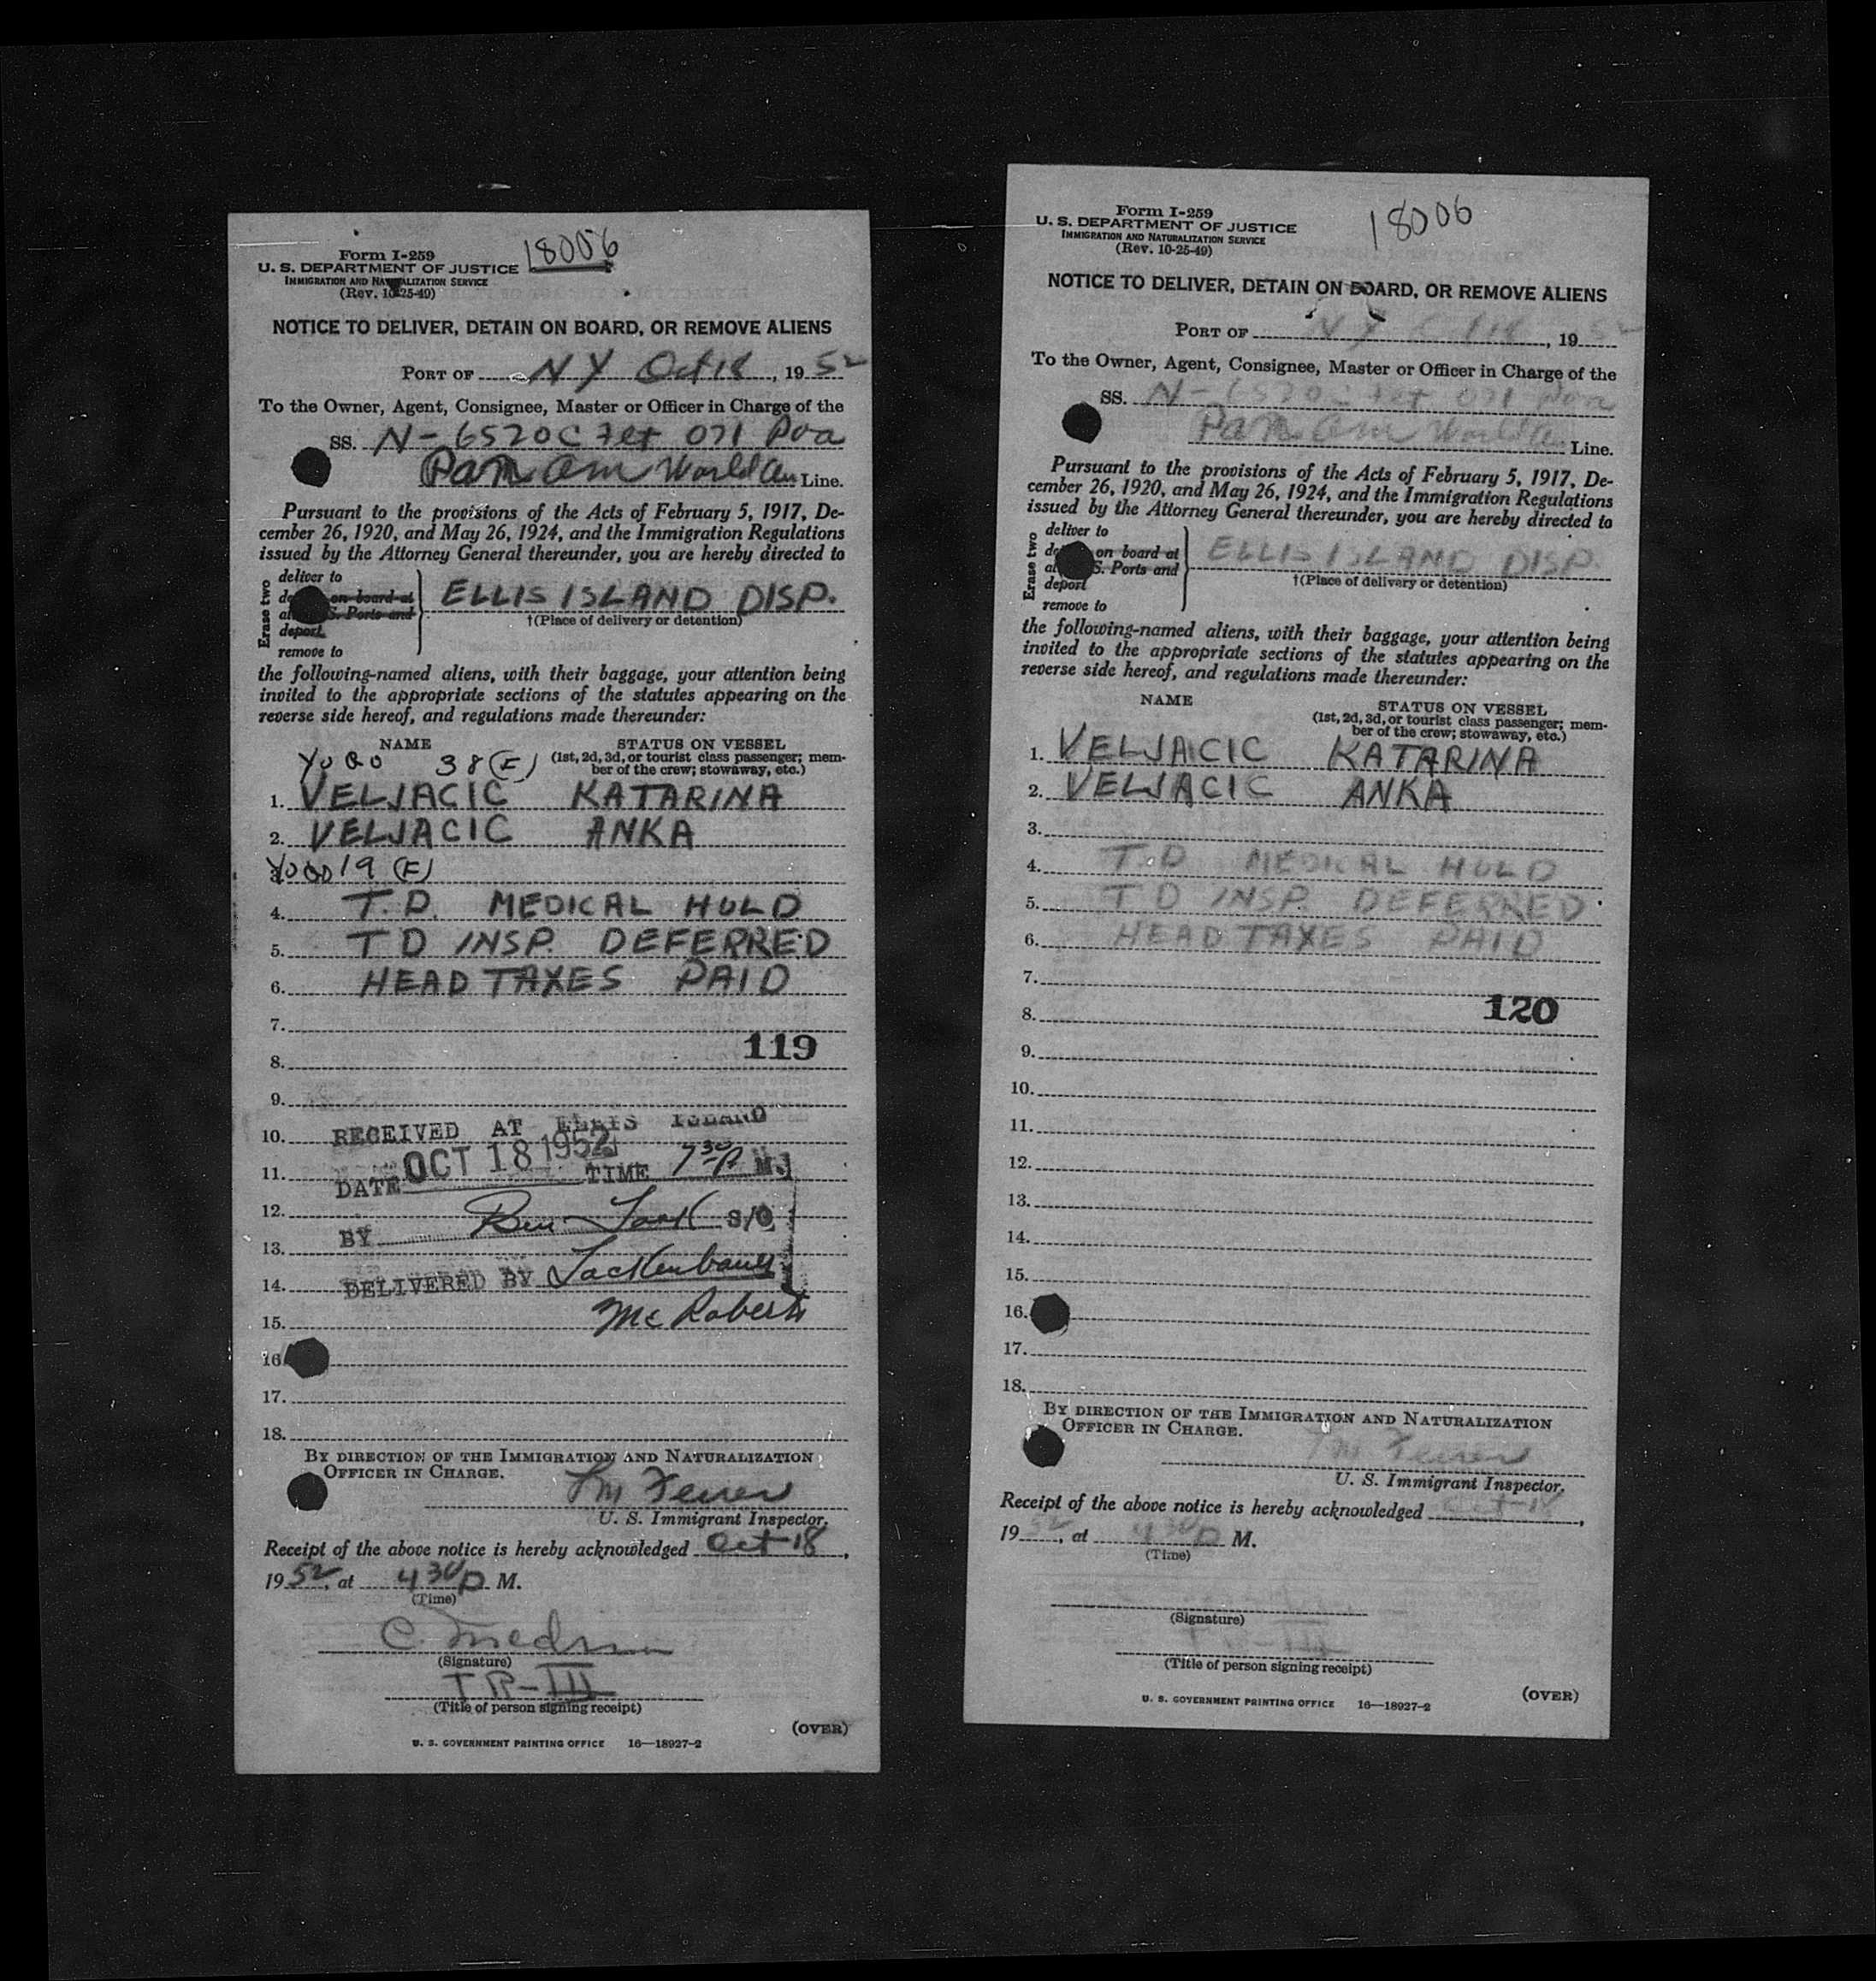 Form I-259
U. S. DEPARTMENT OF JUSTICE
IMMIGRATION AND NATURALIZATION SERVICE
(Rev. 10-25-49)
18006
NOTICE TO DELIVER, DETAIN ON BOARD, OR REMOVE ALIENS
PORT OF NY Oct 18, 1952
To the Owner, Agent, Consignee, Master or Officer in Charge of the
SS. N-6520C Flt 071 Poa
Pan Am World Line.
Pursuant to the provisions of the Acts of February 5, 1917, De-
cember 26, 1920, and May 26, 1924, and the Immigration Regulations
issued by the Attorney General thereunder, you are hereby directed to
Erase two
deliver to
on board at
S. Ports and
deport
remove to
ELLIS ISLAND DISP.
†(Place of delivery or detention)
the following-named aliens, with their baggage, your attention being
invited to the appropriate sections of the statutes appearing on the
reverse side hereof, and regulations made thereunder:
NAME
STATUS ON VESSEL
(1st, 2d, 3d, or tourist class passenger; mem-
ber of the crew; stowaway, etc.)
YUGO 38 (F)
1. VELJACIC KATARINA
2. VELJACIC ANKA
YUGO 19 (F)
4. T.D. MEDICAL HOLD
5. T D INSP. DEFERRED
6. HEAD TAXES PAID
7.
119
8.
9.
10. RECEIVED AT ELLIS ISLAND
11. DATE OCT 18 1952 TIME 7 30 P M.
12.
BY S/O
13.
14. DELIVERED BY
15. McRoberts
16.
17.
18.
BY DIRECTION OF THE IMMIGRATION AND NATURALIZATION
OFFICER IN CHARGE.
U. S. Immigrant Inspector.
Receipt of the above notice is hereby acknowledged Oct 18,
1952, at 4 30 P. M.
(Time)
(Signature)
TR-III
(Title of person signing receipt)
(OVER)
U. S. GOVERNMENT PRINTING OFFICE 16—18927-2
Form I-259
U. S. DEPARTMENT OF JUSTICE
IMMIGRATION AND NATURALIZATION SERVICE
(Rev. 10-25-49)
18006
NOTICE TO DELIVER, DETAIN ON BOARD, OR REMOVE ALIENS
PORT OF NY 18, 1952
To the Owner, Agent, Consignee, Master or Officer in Charge of the
SS. N-6520C Flt 071 Poa
Pan Am World Line.
Pursuant to the provisions of the Acts of February 5, 1917, De-
cember 26, 1920, and May 26, 1924, and the Immigration Regulations
issued by the Attorney General thereunder, you are hereby directed to
Erase two
deliver to
on board at
S. Ports and
deport
remove to
ELLIS ISLAND DISP.
†(Place of delivery or detention)
the following-named aliens, with their baggage, your attention being
invited to the appropriate sections of the statutes appearing on the
reverse side hereof, and regulations made thereunder:
NAME
STATUS ON VESSEL
(1st, 2d, 3d, or tourist class passenger; mem-
ber of the crew; stowaway, etc.)
1. VELJACIC KATARINA
2. VELJACIC ANKA
3.
4. T.D MEDICAL HOLD
5. T D INSP. DEFERRED
6. HEAD TAXES PAID
7.
120
8.
9.
10.
11.
12.
13.
14.
15.
16.
17.
18.
BY DIRECTION OF THE IMMIGRATION AND NATURALIZATION
OFFICER IN CHARGE.
U. S. Immigrant Inspector.
Receipt of the above notice is hereby acknowledged Oct 18,
1952, at 4 30 P M.
(Time)
(Signature)
TR-III
(Title of person signing receipt)
(OVER)
U. S. GOVERNMENT PRINTING OFFICE 16—18927-2